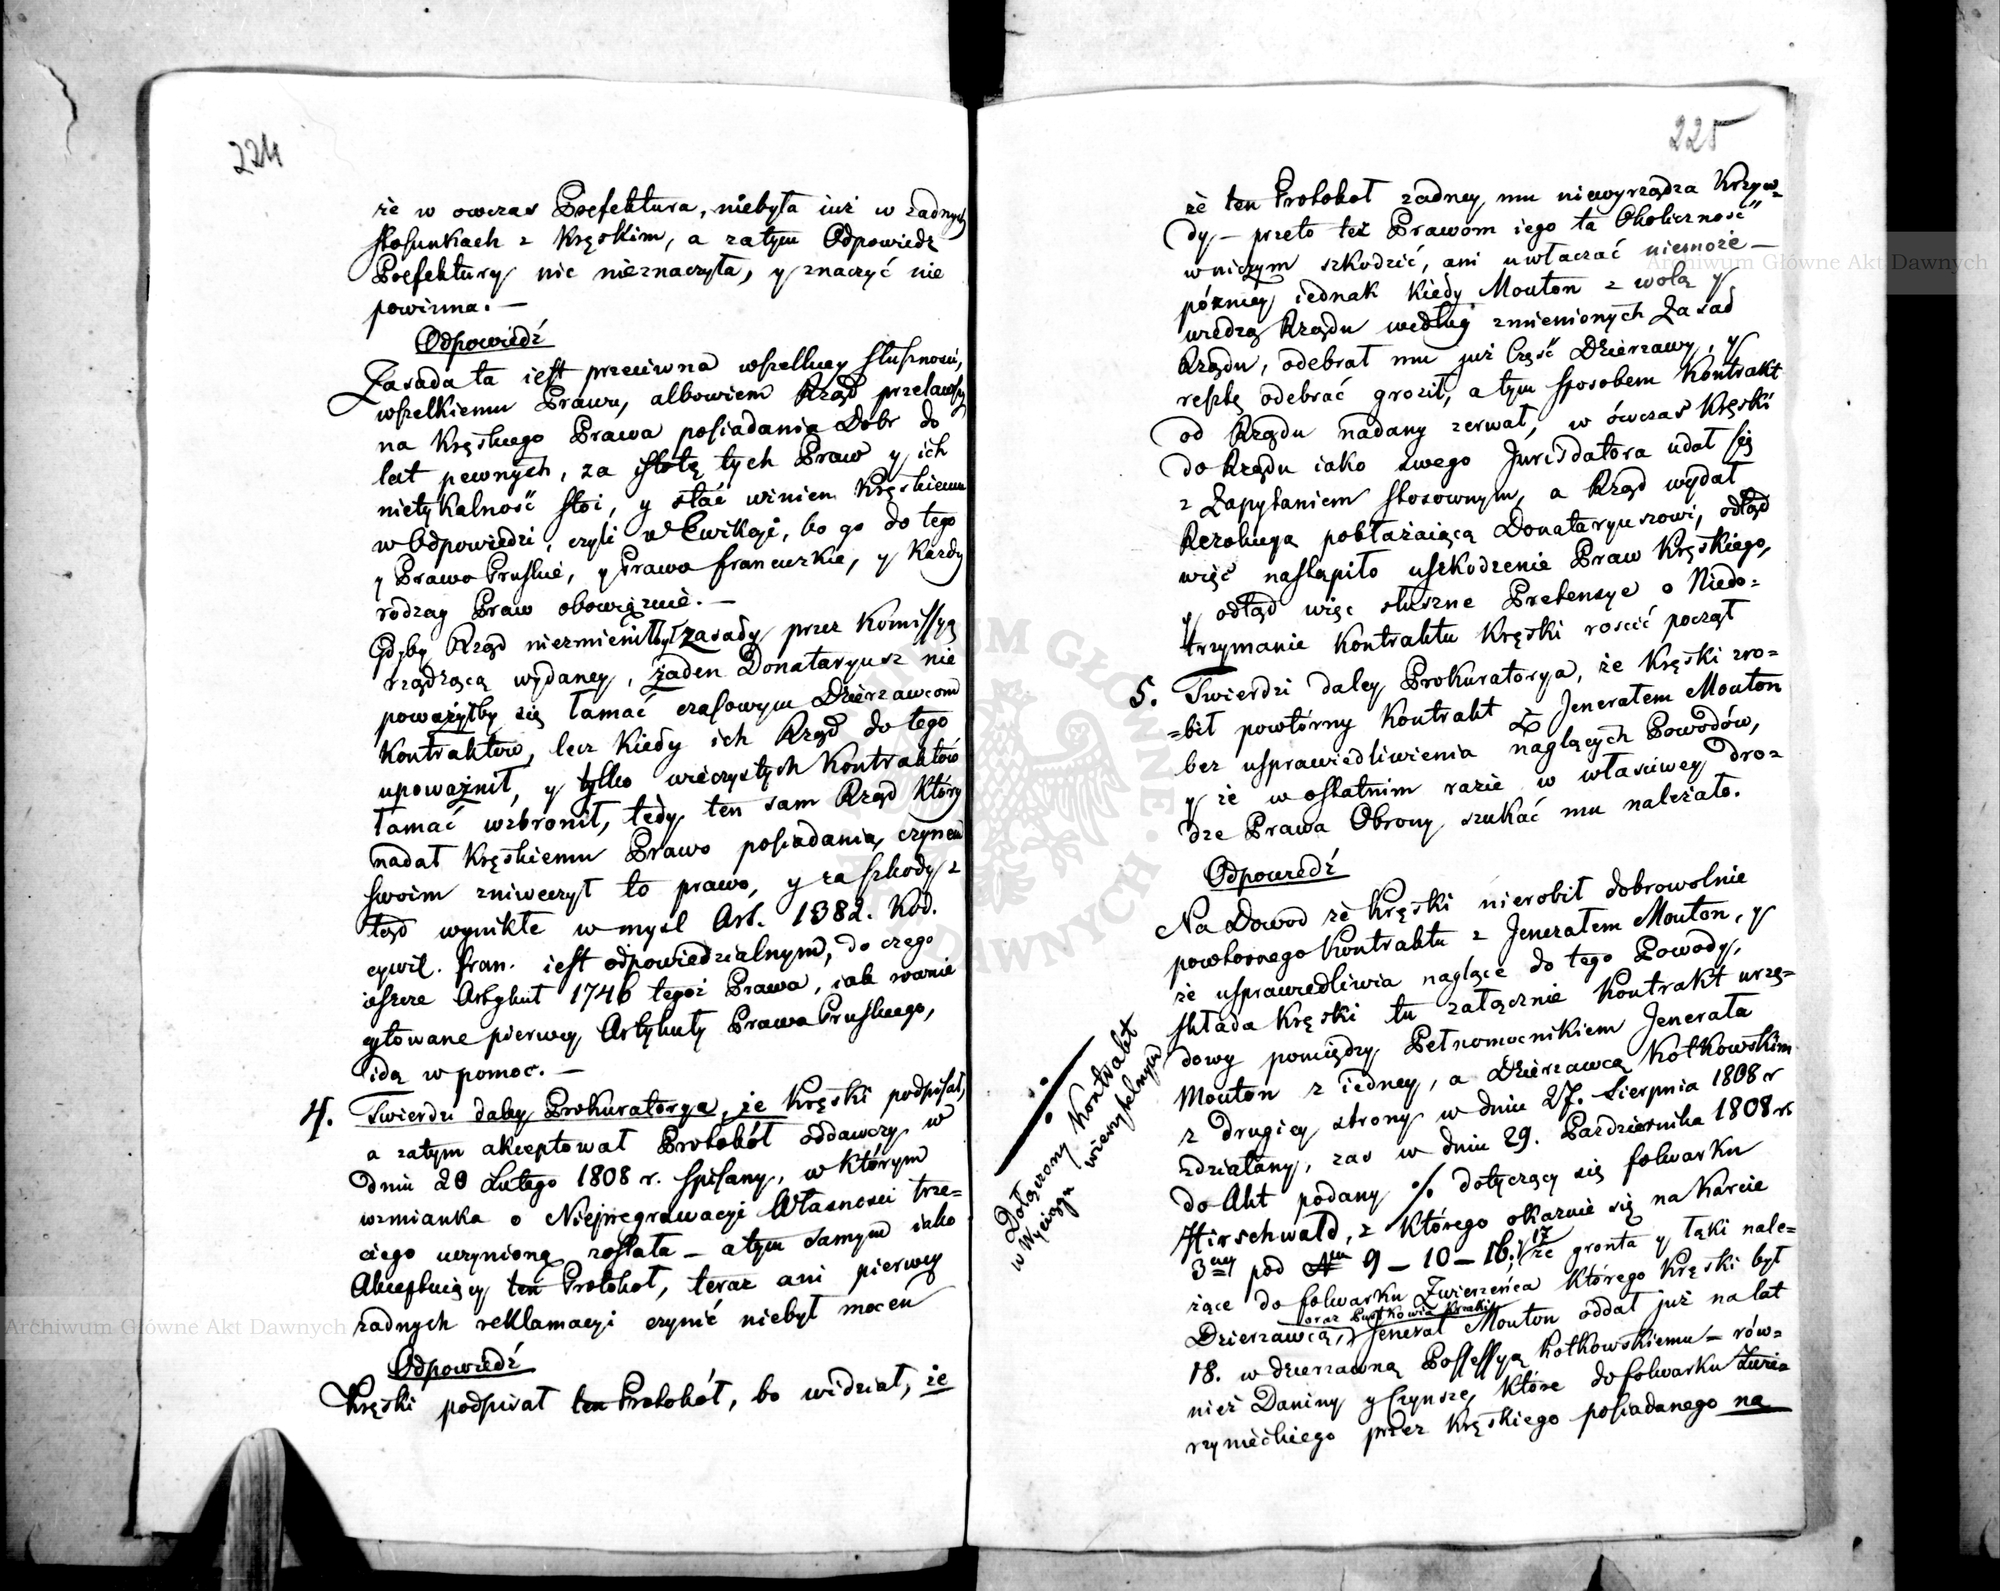 224
że w owczas Prefektura, niebyła iuż w żadnych
stosunkach z Kręskim, a zatym Odpowiedź
Prefektury nic nieznaczyła, y znaczyć nie
powinna. —
Odpowiedź
Zasada ta iest przeciwna wszelkiey słuszności,
wszelkiemu Prawu, albowiem Rząd przelawszy
na Kręskiego Prawa posiadania Dobr do
lat pewnych, za istotę tych Praw y ich
nietykalność stoi, y stać winien Kręskiemu
w Odpowiedzi, czyli w Ewikcyi, bo go do tego
y Prawo Pruskie, y Prawo francuzkie, y Każdy
rodzay Praw obowiązuie. —
Gdyby Rząd niezmienił był zasady przez Kommissyą
rządzącą wydaney, żaden Donataryusz nie
poważyłby się łamać czasowym Dzierzawcom
Kontraktow, lecz kiedy ich Rząd do tego
upoważnił, y tylko wieczystych Kontraktów
łamać wzbronił, tedy ten sam Rząd który
nadał Kręskiemu Prawo posiadania, czynem
swoim zniweczył to prawo, y za szkody z
tąd wynikłe w mysl Art. 1382. Kod.
cywil. fran. iest odpowiedzialnym, do czego
ieszcze Artykuł 1746 tegoż Prawa, iak rownie
cytowane pierwey Artykuły Prawa Pruskiego,
idą w pomoc. —
4. Twierdzi daley Prokuratorya, że Kręski podpisał,
a zatym akceptował Protokół oddawczy w
dniu 20 Lutego 1808 r. spisany, w którym
wzmianka o Nieprzegrawacyi Własnosci trze=
ciego uczynioną została — a tym samym iako
Akceptuiący ten Protokoł, teraz ani pierwey
żadnych reklamacyi czynić niebył mocen
Odpowiedź
Kręski podpisał ten Protokół, bo widział, że
225
że ten Protokoł żadney mu niewyrządza Krzyw=
dy — przeto też Prawom iego ta Okoliczność
w niczym szkodzić, ani uwłaczać niemoże —
pózniey iednak kiedy Mouton z wolą y
wiedzą Rządu według zmienionych Zasad
Rządu, odebrał mu już Część Dzierzawy, y
resztę odebrać groził, a tym sposobem Kontrakt
od Rządu nadany zerwał, w ówczas Kręski
do Rządu iako swego Jurisdatora udał się
z Zapytaniem stosownym, a Rząd wydał
Rezolucyą pobłażaiącą Donataryuszowi, odtąd
więc nastąpiło uszkodzenie Praw Kręskiego,
y odtąd więc słuszne Pretensye o Niedo=
trzymanie Kontraktu Kręski roscić począł
5. Twierdzi daley Prokuratorya, że Kręski zro=
=bił powtórny Kontrakt z Jenerałem Mouton
bez usprawiedliwienia naglących Powodów,
y że w ostatnim razie w właściwey dro=
dze Prawa Obrony szukać mu należało.
Odpowiedź
Na Dowod że Kręski nierobił dobrowolnie
powtornego Kontraktu z Jenerałem Mouton, y
że usprawiedliwia naglące do tego Powody,
składa Kręski tu załącznie Kontrakt urzę=
dowy pomiędzy Pełnomocnikiem Jenerała
Mouton z iedney, a Dzierzawcą Kołkowskim
z drugiey strony w dniu 27. Sierpnia 1808 r
zdziałany, zas w dniu 29. Pazdziernika 1808 r.
do Akt podany % dotyczący się folwarku
Hirschwald, z Którego okazuie się na Karcie
3ciey pod Nm 9 — 10 — 16, y 17 że gronta y łąki nale=
żące do folwarku Zwierzeńca Którego Kręski był
oraz Pustkowia Kruki
Dzierzawcą, Jenerał Mouton oddał już na lat
18. w dzierzawną Possessyą Kołkowskiemu — rów=
nież Daniny y Czynsze, Które do folwarku Zwie
rzynieckiego przez Kręskiego posiadanego na
Dołączony Kontrakt
w Wyciągu wierzytelnym